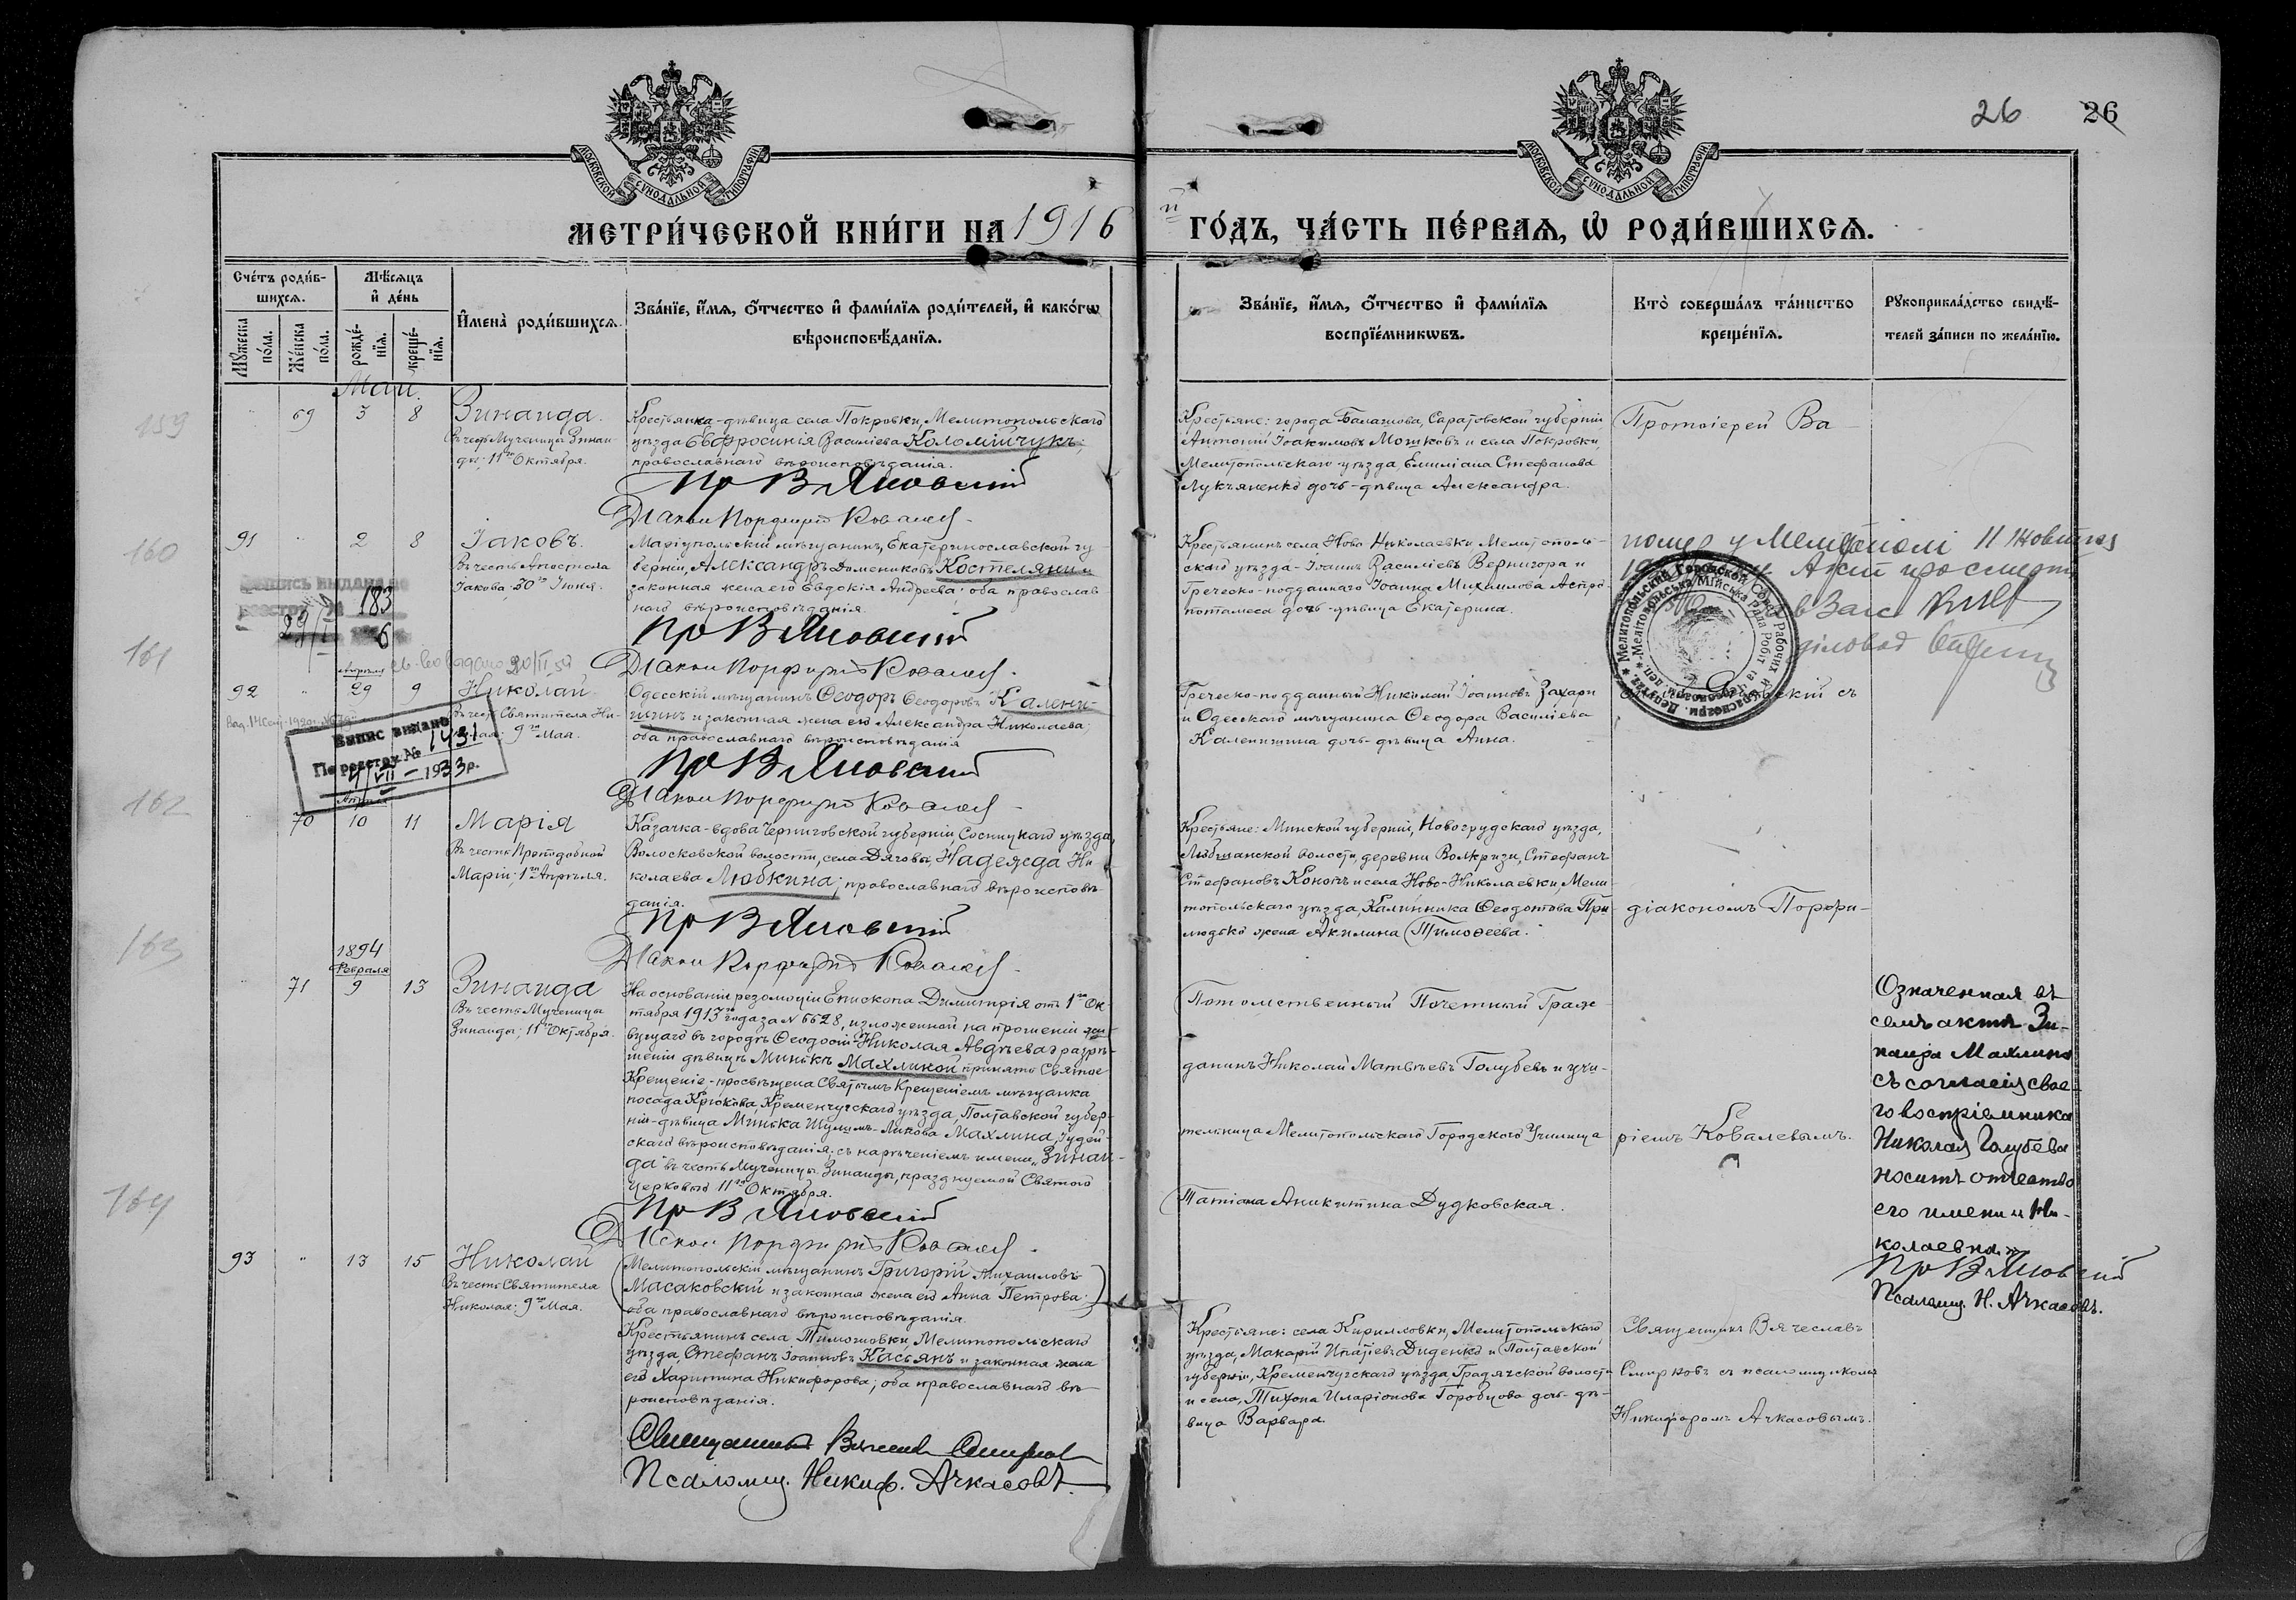 26 26
МОСКОВСКОЙ СѴНОДАЛЬНОЙ ТИПОГРАФІИ
МОСКОВСКОЙ СѴНОДАЛЬНОЙ ТИПОГРАФІИ
МЕТРИ́ЧЕСКОЙ КНИ́ГИ НА 1916 й ГО́ДЪ, ЧА́СТЬ ПЕ́РВАЯ, Ѡ҆ РОДИ́ВШИХСЯ.
Сче́тъ роди́в-
шихся.
Мꙋжеска по́ла.
Же́нска по́ла.
Мѣ́сяцъ
и҆ де́нь
рожде́-
нїя.
креще́-
нїя.
И҆мена̀ роди́вшихся.
Зва́нїе, и҆́мя, ѻ҆́тчество и҆ фами́лїя роди́телей, и҆ како́гѡ
вѣроисповѣ́данїя.
Зва́нїе, и҆́мя, ѻ҆́тчество и҆ фами́лїя
воспрїе́мникѡвъ.
Кто̀ соверша́лъ та́инство
креще́нїя.
Рꙋкоприкла́дство свидѣ́-
телей за́писи по жела́нїю.
Май.
159
69 3 8
Зинаида.
Въ честь Мученицы Зинаи-
ды; 11го Октября.
Крестьянка-дѣвица села Покровки, Мелитопольскаго
уѣзда Евфросинія Васильева Коломійчукъ;
православнаго вѣроисповѣданія.
Пр В Яновский
Діакон Порфирій Ковалев
Крестьяне: города Балашова, Саратовской губерніи,
Антоній Іоакимовъ Мошковъ и села Покровки,
Мелитопольскаго уѣзда, Емиліана Стефанова
Лукьяненко дочь-дѣвица Александра.
Протоіерей Ва-
160
91 " 2 8
Іаковъ.
Въ честь Апостола
Іакова; 30го Іюня.
Маріупольскій мѣщанинъ, Екатеринославской гу-
берніи, Александръ Домениковъ Костеляни и
законная жена его Евдокія Андреева; оба православ-
наго вѣроисповѣданія.
Пр В Яновский
Діакон Порфирій Ковалев
Крестьянинъ села Ново Николаевки Мелитополь-
скаго уѣзда - Іоаннъ Васильевъ Вернигора и
Греческо-подданнаго Іоанна Михаилова Аспро-
потамоса дочь-дѣвица Екатерина.
помер у Мелітополі 11 жовтня
Акт про смерть
в Загс
діловод
Мелитопольский Городской Совет Рабочих и Красноарм. Депутат.
Мелітопольська Міська Рада Робіт. та Червоноарм. деп.
183
29/I 6
161
Апрѣля
20/II 59
92 " 29 9
Николай
Въ честь Святителя Ни-
колая: 9го Мая.
Випис видано
По реєстру № 1431
4/VII-1933р.
Одесскій мѣщанинъ Ѳеодоръ Ѳеодоровъ Калени-
шинъ и законная жена его Александра Николаева;
оба православнаго вѣроисповѣданія
Пр В Яновский
Діакон Порфирій Ковалев
Греческо-подданный Николай Іоанновъ Захари
и Одесскаго мѣщанина Ѳеодора Васильева
Каленишина дочь-дѣвица Анна.
силій Яновскій съ
162
Апрѣля
" 70 10 11
Марія
Въ честь Преподобной
Маріи; 1го Апрѣля.
Казачка-вдова Черниговской губерніи, Сосницкаго уѣзда,
Волосковской волости, села Дяговы, Надежда Ни-
колаева Любкина; православнаго вѣроисповѣ-
данія.
Пр В Яновский
Діакон Порфирій Ковалев
Крестьяне: Минской губерніи, Новогрудскаго уѣзда,
Любчанской волости, деревни Волкризи, Стефанъ
Стефановъ Кокотъ и села Ново-Николаевки, Мели-
топольскаго уѣзда, Калинника Ѳеодотова При-
людько жена Акилина Тимоѳеева.
діакономъ Порфи-
163
1894
Февраля
71 9 13
Зинаида
Въ честь Мученицы
Зинаиды; 11го Октября.
На основаніи резолюціи Епископа Димитрія отъ 1го Ок-
тября 1913го года за № 6628, изложенной на прошеніи жи-
вущаго въ городѣ Ѳеодосіи Николая Авдѣева о разрѣ-
шеніи дѣвицѣ Минькѣ Махлиной принять Святое
Крещеніе, - просвѣщена Святымъ Крещеніемъ мѣщанка
посада Крюкова, Кременчугскаго уѣзда, Полтавской губер-
ніи-дѣвица Минька Шулимъ-Ликова Махлина, іудей-
скаго вѣроисповѣданія; съ нареченіемъ имени „Зинаи-
да" въ честь Мученицы Зинаиды, празднуемой Святою
Церковью 11го Октября.
Пр В Яновский
Діакон Порфирій Ковалев
Потомственный Почетный Граж-
данинъ Николай Матвѣевъ Голубевъ и учи-
тельница Мелитопольскаго Городского Училища
Татіана Аникитина Дудковская.
ріемъ Ковалевымъ.
Означенная въ
семъ актѣ Зи-
наида Махлина
съ согласія свое-
го воспріемника
Николая Голубева
носитъ отчество
его имени „Ни-
колаевна".
Пр В Яновский
Псаломщ. Н. Ачкасовъ.
164
93 " 13 15
Николай
Въ честь Святителя
Николая: 9го Мая.
(Мелитопольскій мѣщанинъ Григорій Михаиловъ
Масаковскій и законная жена его Анна Петрова;)
оба православнаго вѣроисповѣданія.
Крестьянинъ села Тимошовки, Мелитопольскаго
уѣзда, Стефанъ Іоанновъ Касьянъ и законная жена
его Харитина Никифорова; оба православнаго вѣ-
роисповѣданія.
Священникъ Вячеслав Смирнов
Псаломщ. Никиф. Ачкасовъ.
Крестьяне: села Кирилловки, Мелитопольскаго
уѣзда, Макарій Игнатіевъ Диденко и Полтавской
губерніи, Кременчугскаго уѣзда Градижской волости
и села, Тихона Иларіонова Горобцова дочь-дѣ-
вица Варвара.
Священникъ Вячеславъ
Смирновъ съ псаломщикомъ
Никифоромъ Ачкасовымъ.